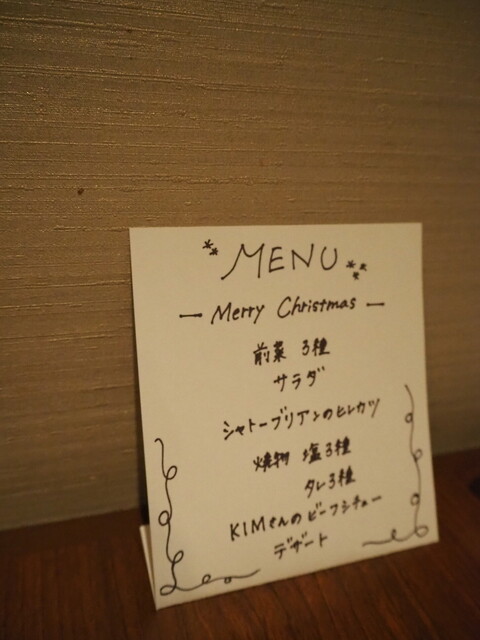 MENU
— Merry Christmas —
前菜 3種
サラダ
シャトーブリアンのヒレカツ
焼物 塩3種
タレ3種
KIMさんのビーフシチュー
デザート